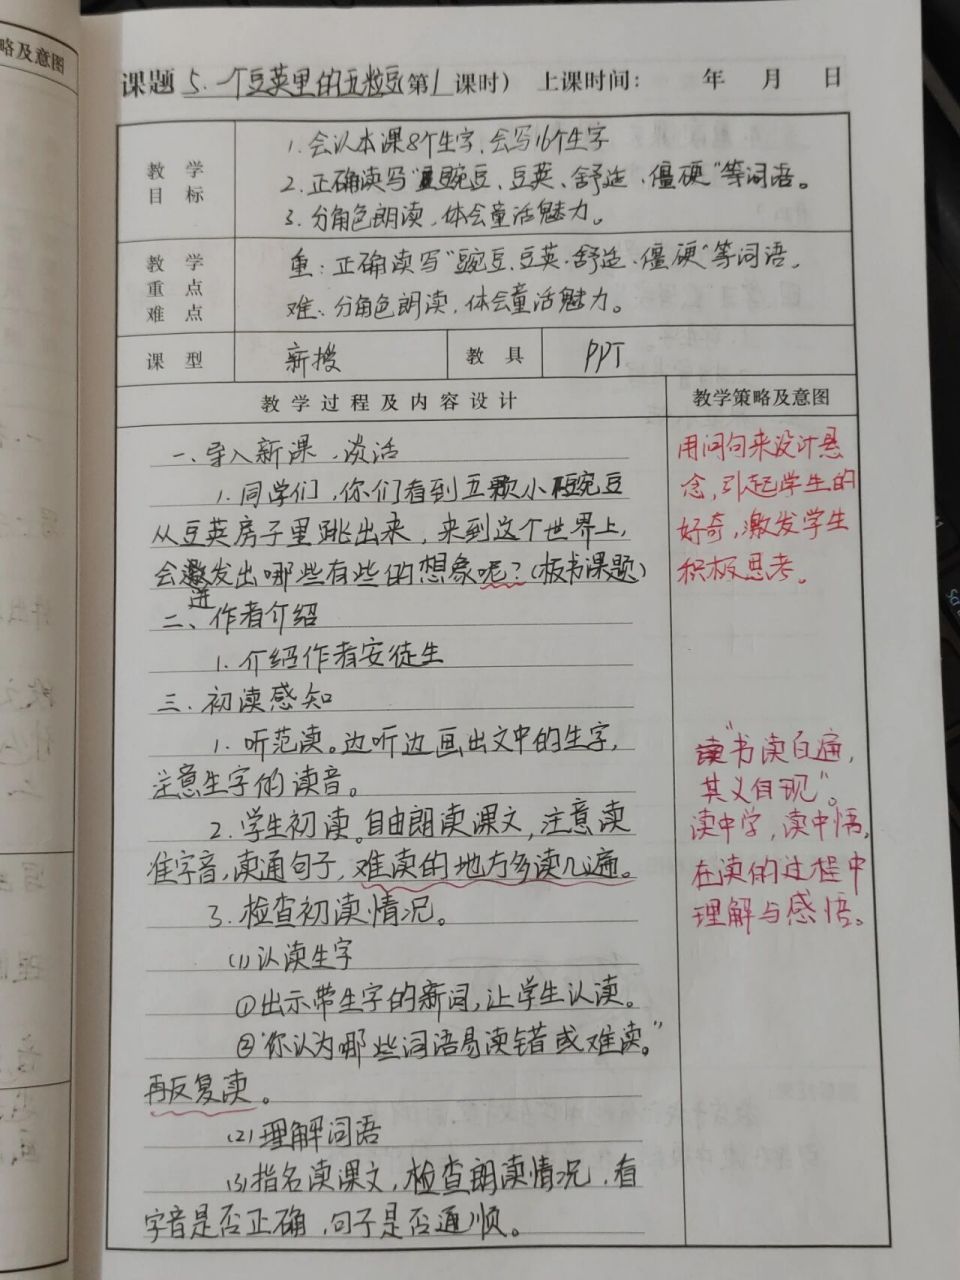 略及意图
课题 5.一个豆荚里的五粒豆(第1课时) 上课时间: 年 月 日
教学目标
1.会认本课8个生字,会写16个生字
2.正确读写"豌豆、豆荚、舒适、僵硬"等词语。
3.分角色朗读,体会童话魅力。
教学重点难点
重:正确读写"豌豆、豆荚、舒适、僵硬"等词语,
难、分角色朗读,体会童话魅力。
课型 新授 教具 PPT
教学过程及内容设计 教学策略及意图
一、导入新课,谈话
1.同学们,你们看到五颗小豌豆
从豆荚房子里跳出来,来到这个世界上,
会迸发出哪些有些的想象呢?(板书课题)
二、作者介绍
1.介绍作者安徒生
三.初读感知
1.听范读。边听边画出文中的生字,
注意生字的读音。
2.学生初读。自由朗读课文,注意读
准字音,读通句子,难读的地方多读几遍。
3.检查初读情况。
(1)认读生字
①出示带生字的新词,让学生认读。
②"你认为哪些词语易读错或难读。"
再反复读。
(2)理解词语
(3)指名读课文,检查朗读情况,看
字音是否正确,句子是否通顺。
用问句来设计悬
念,引起学生的
好奇,激发学生
积极思考。
"书读百遍,
其义自现"。
读中学,读中悟,
在读的过程中
理解与感悟。